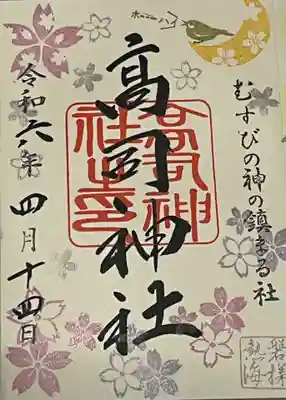 ホーホーハイ
むすびの神の鎮まる社
高司神社
高司神社之印
令和六年四月十四日
磐梯
熱海